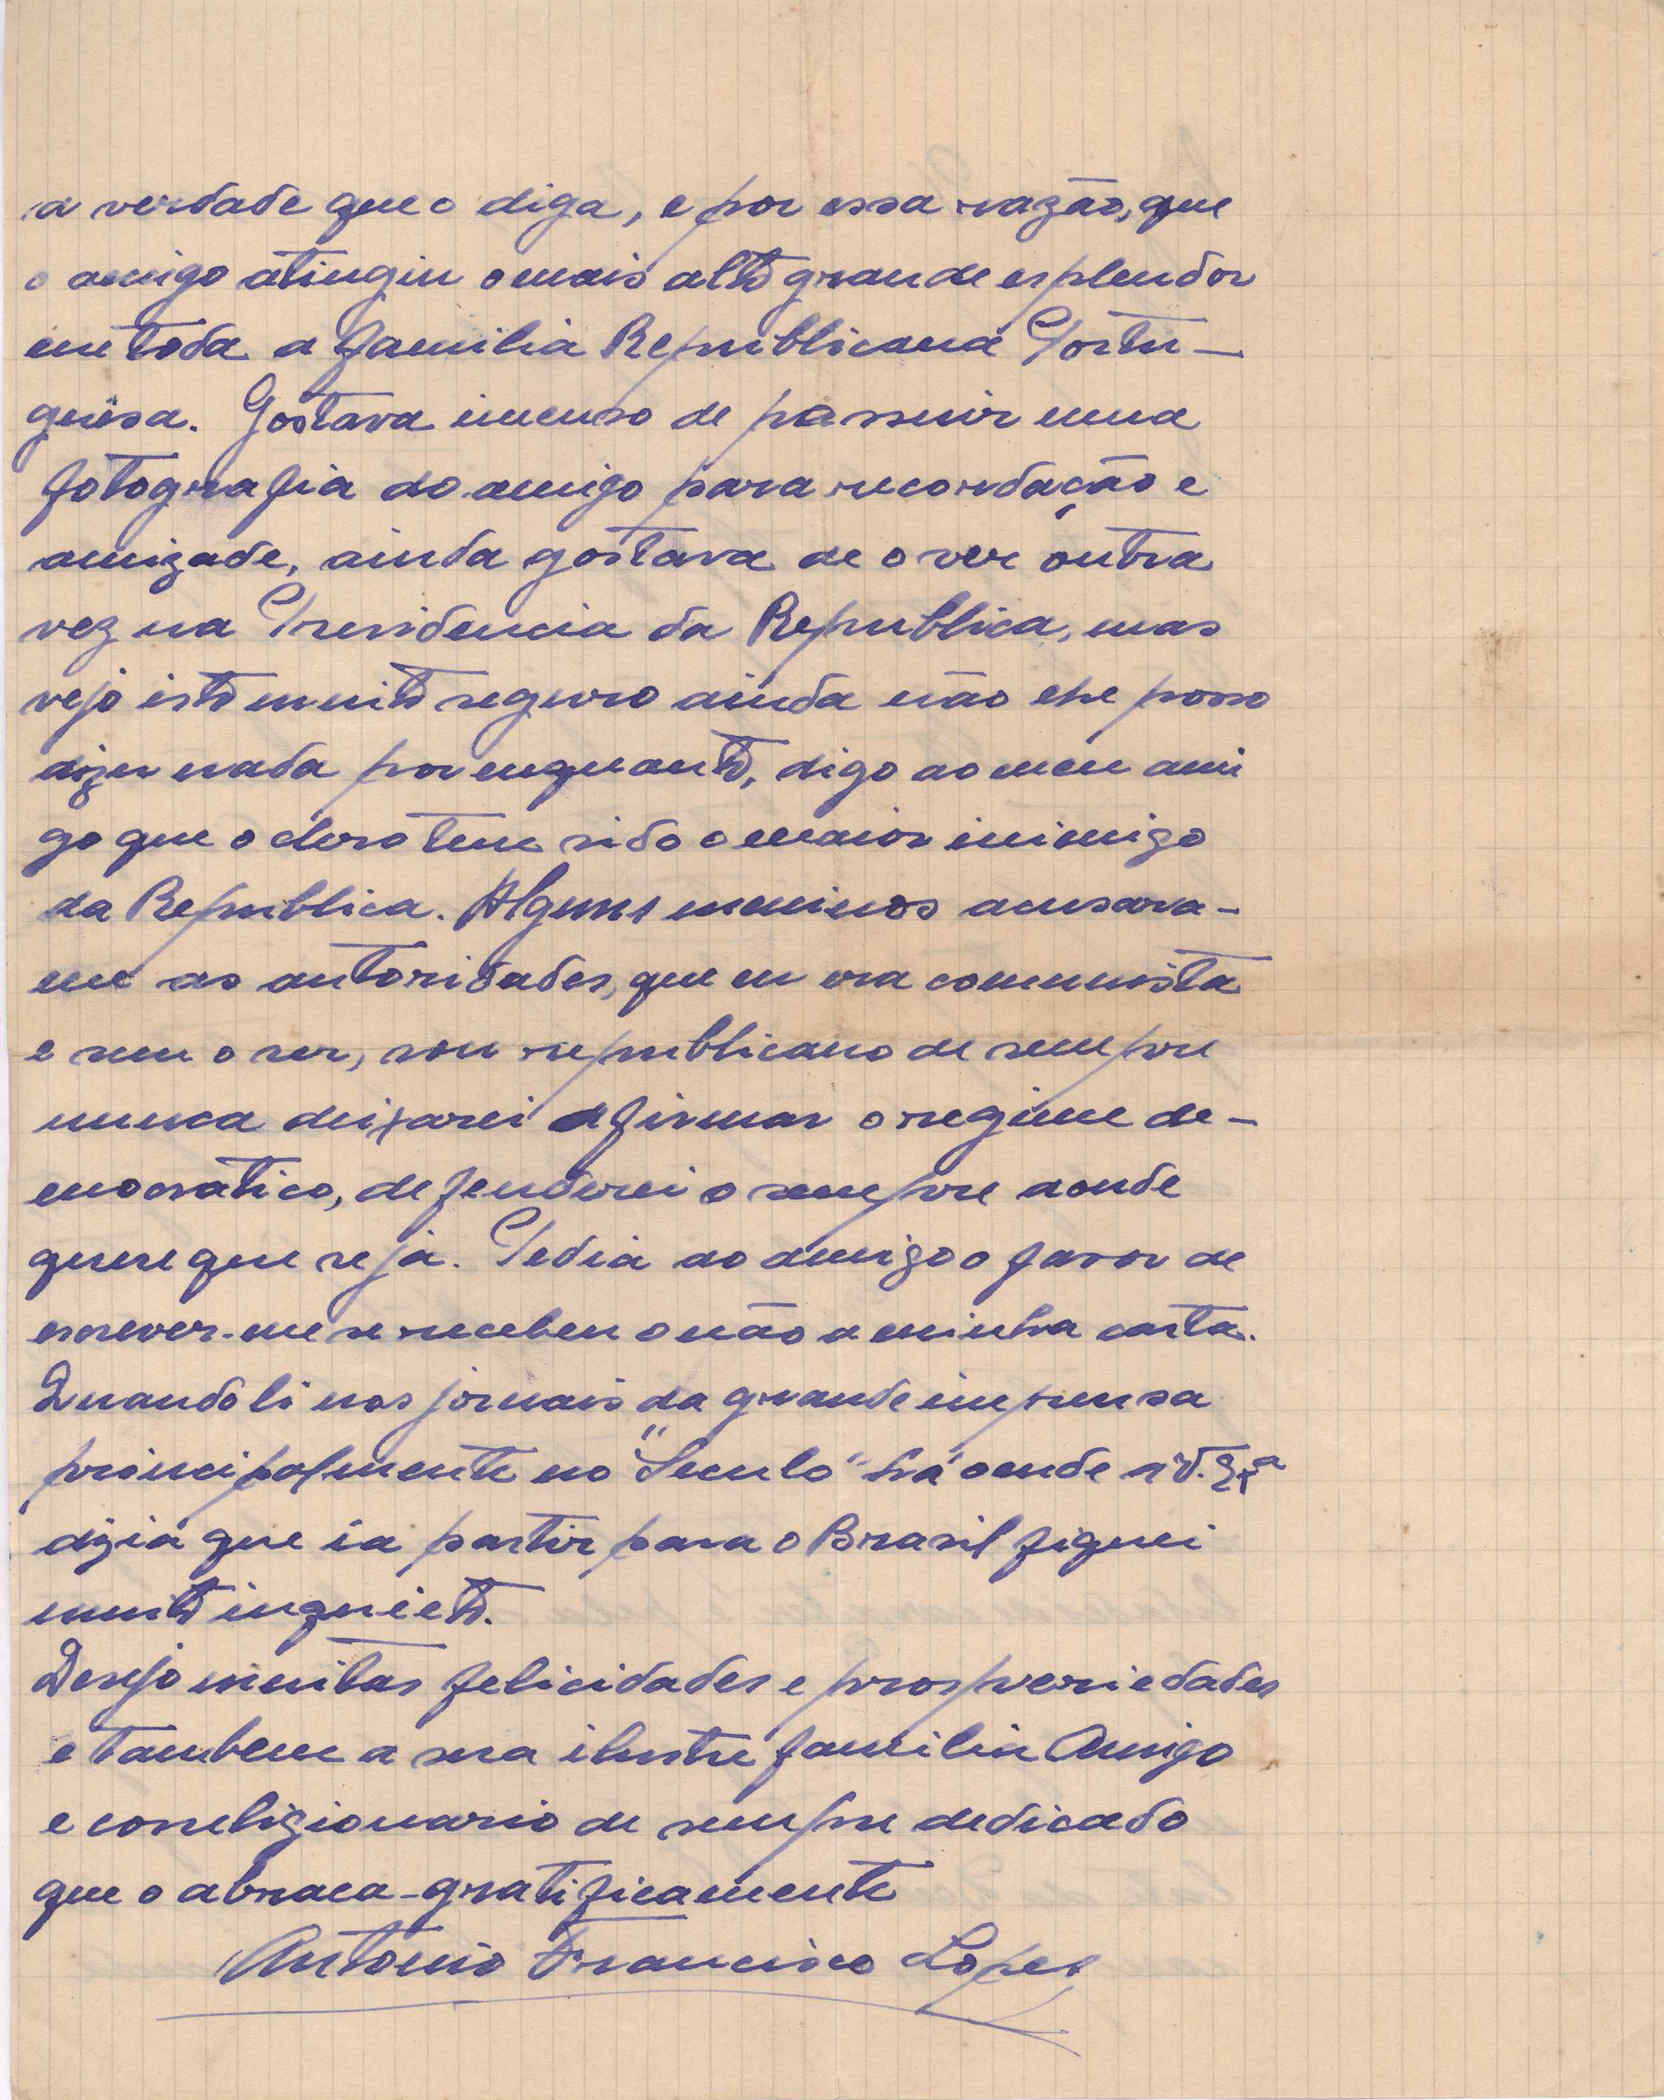 a verdade que o diga, e por essa razão, que
o amigo atingiu o mais alto grande esplendor
em toda a familia Republicana Portu-
guêsa. Gostava imenso de possuir uma
fotografia do amigo para recordação e
amizade, ainda gostava de o ver outra
vez na Presidencia da Republica, mas
vejo isto muito seguro ainda não lhe posso
dizer nada por enquanto, digo ao meu ami
go que o clero tem sido o maior inimigo
da Republica. Alguns meninos acusara-
me as autoridades, que eu era comunista
e sem o ser, sou republicano de sempre
nunca deixarei afirmar o regime de-
mocratico, defenderei o sempre aonde
quere que seja. Pedia ao amigo o favor de
escrever-me se recebeu o não a minha carta.
Quando li nos jornais da grande imprensa
principalmente no "Seculo" há onde V. Exª
dizia que ia partir para o Brasil fiquei
muito inquieto.
Desejo muitas felicidades e prosperiedades
e tambem a sua ilustre familia Amigo
e correligionario de sempre dedicado
que o abraca gratificamente
Antonio Francisco Lopes